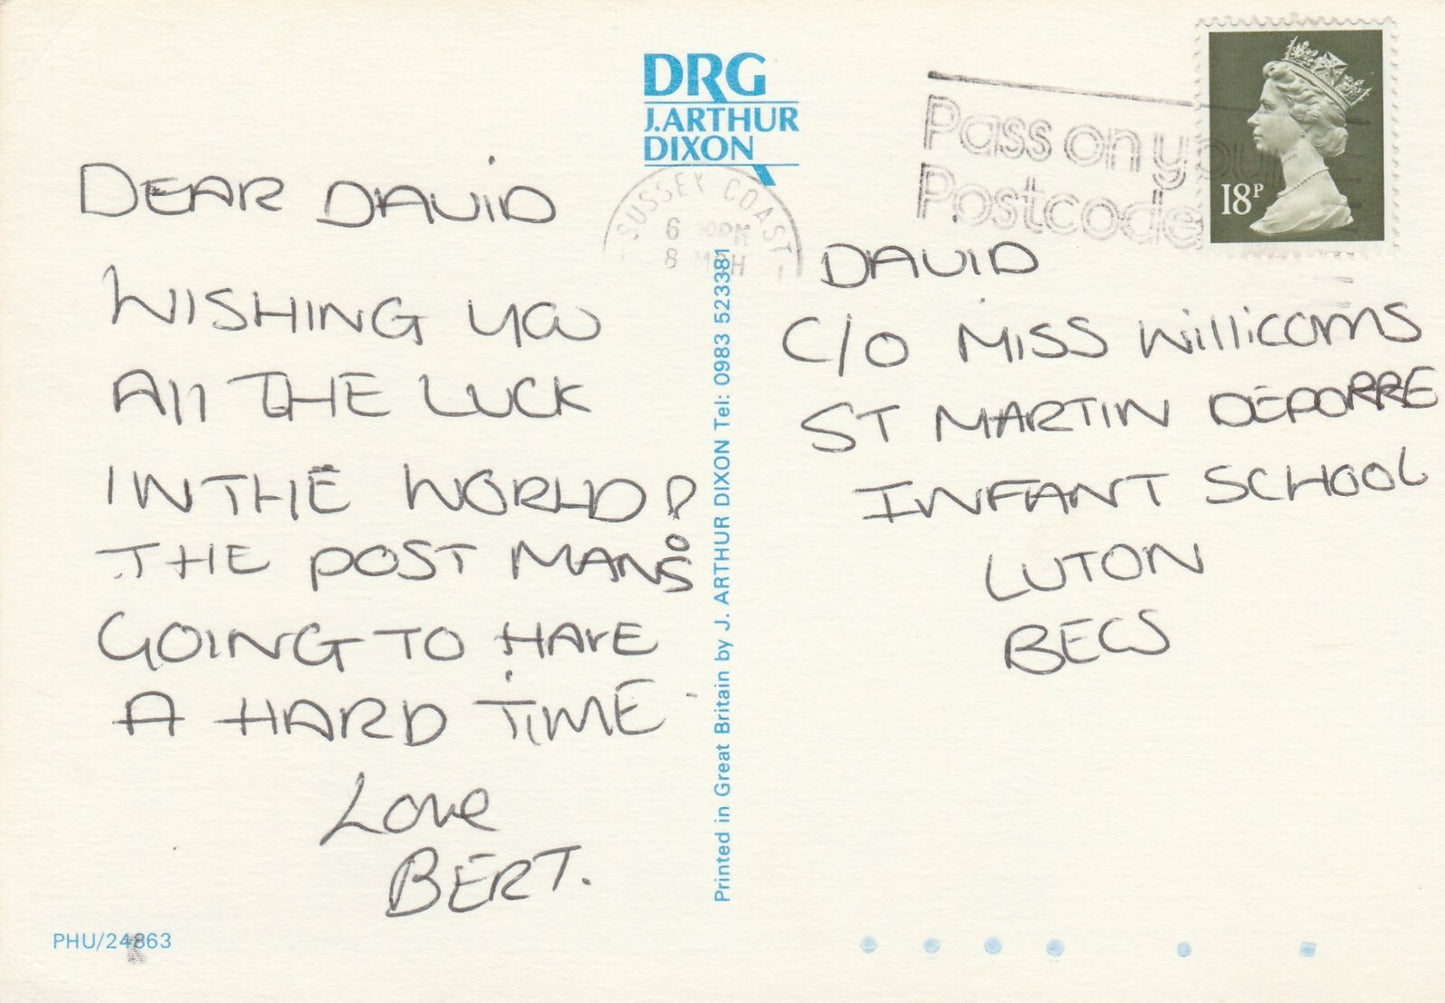 DRG
J.ARTHUR
DIXON
Pass on your
Postcode
18P
SUSSEX COAST
6 PM
8 MCH
DEAR DAVID
WISHING YOU
All THE LUCK
IN THE WORLD!
THE POST MANS
GOING TO HAVE
A HARD TIME
Love
BERT.
DAVID
C/O MISS Williams
ST MARTIN DEPORRE
INFANT SCHOOL
LUTON
BECS
Printed in Great Britain by J. ARTHUR DIXON Tel: 0983 523381
PHU/24863